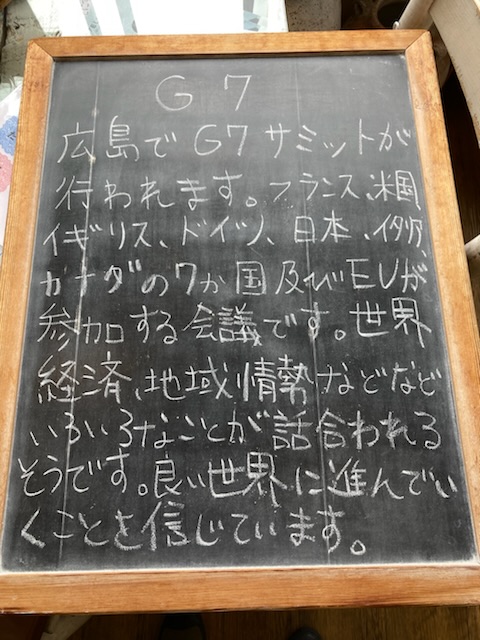 G7
広島でG7サミットが
行われます。フランス、米国
イギリス、ドイツ、日本、伊、
カナダの7か国及びEUが
参加する会議です。世界
経済、地域情勢などなど
いろいろなことが話合われる
そうです。良い世界に進んでい
くことを信じています。